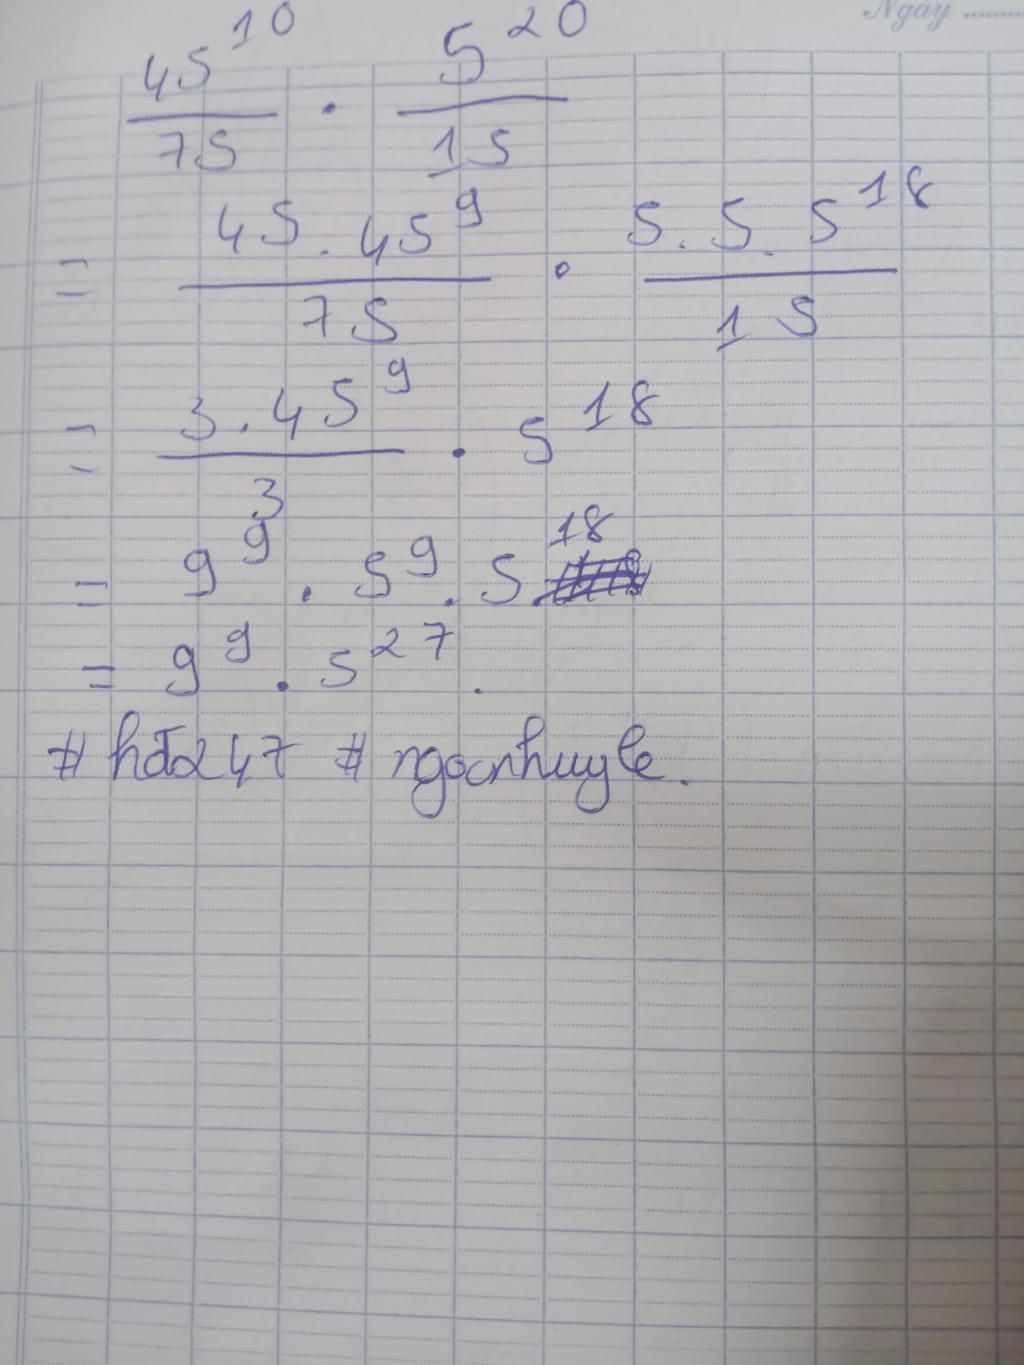 Ngày ..........
45^10/75 . 5^20/15
= 45.45^9/75 . 5.5.5^18/15
= 3.45^9/3 . 5^18
= 9^9 . 5^9 . 5^18
= 9^9 . 5^27 .
# hđ247 # ngocnhuyle.